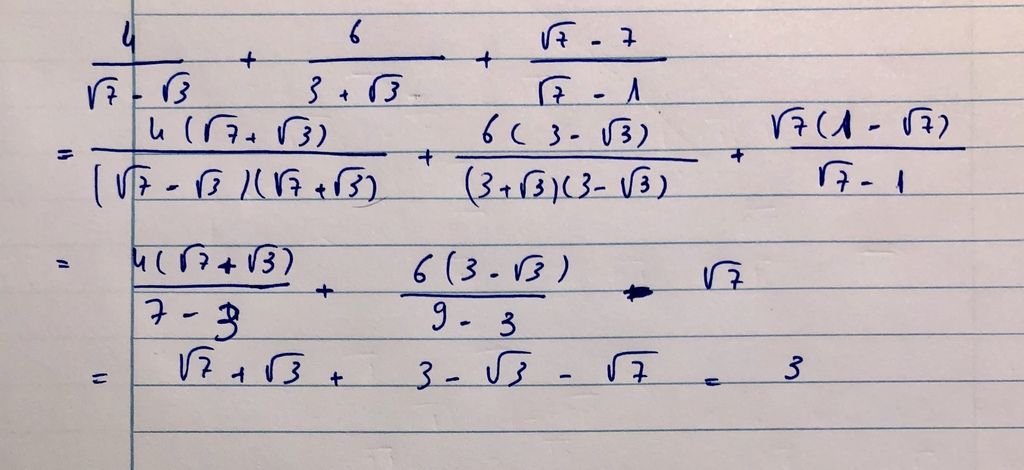 4/(√7 - √3) + 6/(3 + √3) + (√7 - 7)/(√7 - 1)
= 4(√7 + √3)/((√7 - √3)(√7 + √3)) + 6(3 - √3)/((3 + √3)(3 - √3)) + √7(1 - √7)/(√7 - 1)
= 4(√7 + √3)/(7 - 3) + 6(3 - √3)/(9 - 3) - √7
= √7 + √3 + 3 - √3 - √7 = 3